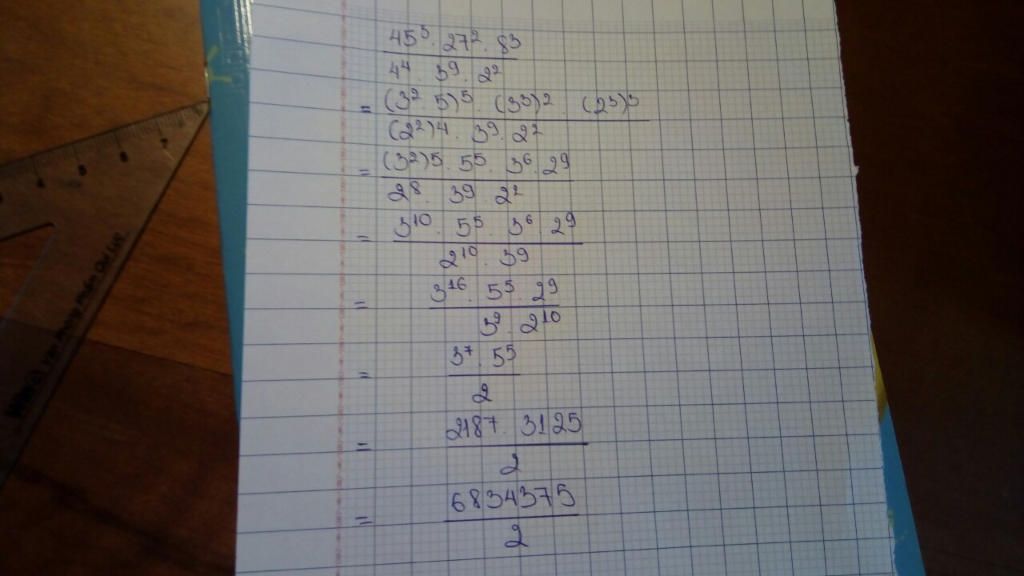 45⁵ · 27² · 8³
4⁴ · 3⁹ · 2²
= (3² 5)⁵ · (3³)² (2³)³
(2²)4 · 3⁹ · 2²
= (3²)5 · 5⁵ · 3⁶ · 2⁹
2⁸ · 3⁹ 2²
= 3¹⁰ · 5⁵ · 3⁶ 2⁹
2¹⁰ · 3⁹
= 3¹⁶ · 5⁵ · 2⁹
3⁹ · 2¹⁰
= 3⁷ · 5⁵
2
= 2187 · 3125
2
= 6834375
2